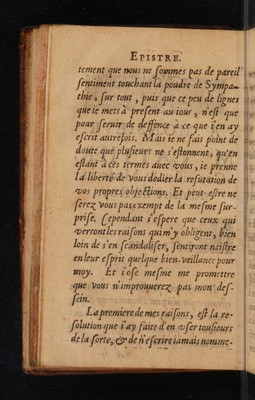 EPISTRE.
tement que nous ne sommes pas de pareil
sentiment touchant la poudre de Sympa-
thie, sur tout, puis que ce peu de lignes
que ie mets à present au iour, n'est que
pour seruir de deffence à ce que i'en ay
escrit autrefois. Mais ie ne fais point de
doute que plusieurs ne s'estonnent, qu'en
estant à ces termes auec vous, ie prenne
la liberté de vous dedier la refutation de
vos propres objections. Et peut-estre ne
serez vous pas exempt de la mesme sur-
prise. Cependant i'espere que ceux qui
verront les raisons qui m'y obligent, bien
loin de s'en scandaliser, sentiront naistre
en leur esprit quelque bien-veillance pour
moy. Et i'ose mesme me promettre
que vous n'improuuerez pas mon des-
sein.
La premiere de mes raisons, est la re-
solution que i'ay faite d'en vser tousiours
de la sorte, & de n'escrire iamais nomme-